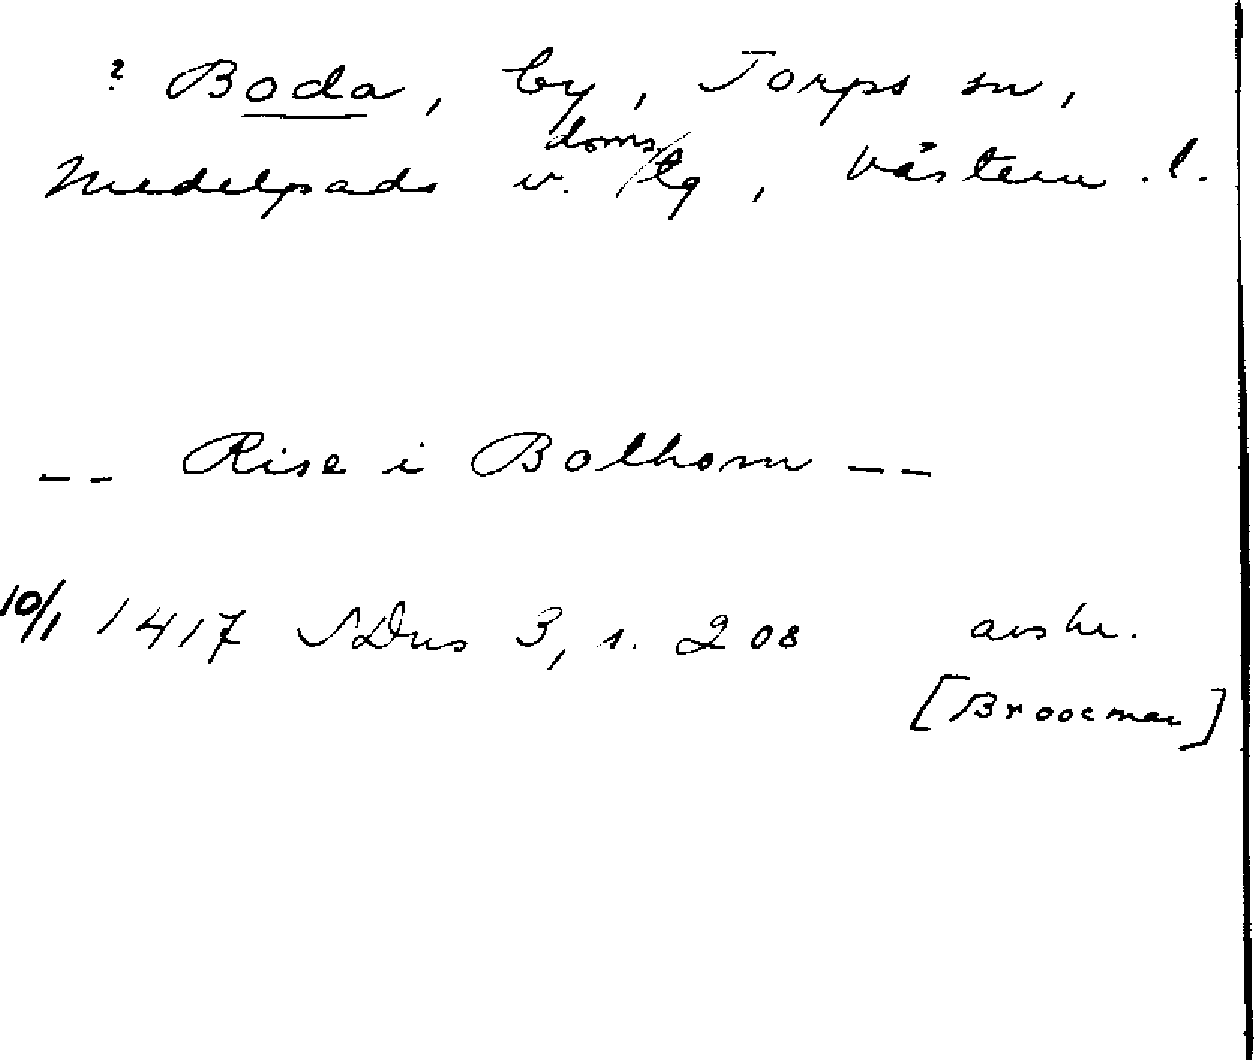 ? Boda, by, Torps sn,
Medelpads v. domstg, Västern.l.
-- Rise i Bolhom --
10/1 1417 SDns 3, s. 208 avskr.
[Broocman]